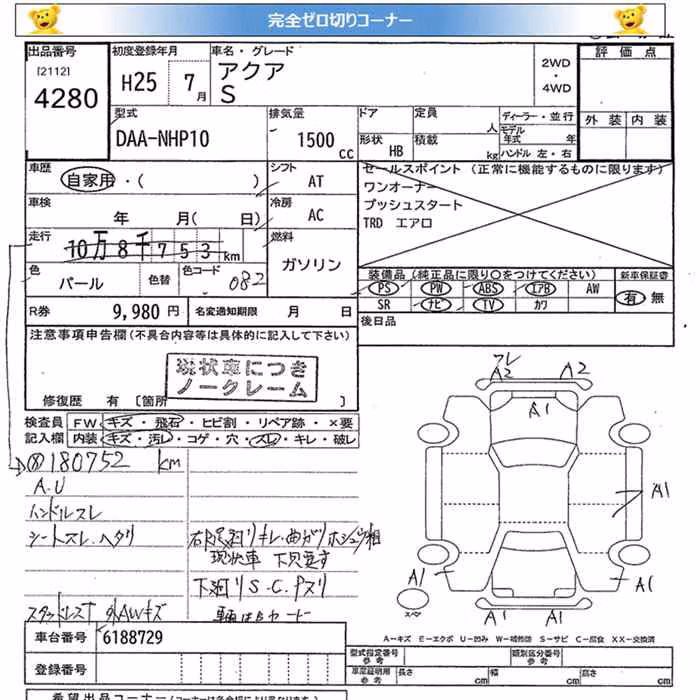 完全ゼロ切りコーナー
出品番号 初度登録年月 車名・グレード 評価点
[2112]
4280
H25 7月
アクア
S
2WD
・
4WD
外装 内装
型式 排気量 ドア 定員 ディーラー・並行
DAA-NHP10 1500 CC
人 モデル年式 年
形状 HB 積載 kg ハンドル 左・右
車歴 自家用・( ) シフト AT
セールスポイント (正常に機能するものに限ります)
ワンオーナー
プッシュスタート
TRD エアロ
車検 年 月( 日) 冷房 AC
走行 10万8千753km 燃料 ガソリン
色 パール 色替 色コード 082
装備品(純正品に限り○をつけてください) 新車保証書
PS PW ABS エアB AW 有 無
SR ナビ TV カワ
R券 9,980円 名変通知期限 月 日
後日品
注意事項申告欄(不具合内容等は具体的に記入して下さい)
現状車につき
ノークレーム
修復歴 有 [箇所 ]
検査員記入欄 FW キズ・飛石・ヒビ割・リペア跡・×要
内装 キズ・汚レ・コゲ・穴・スレ・キレ・破レ
180752 km
A.U
ハンドルスレ
シートスレ、ヘタリ
現状車 下見要す
下廻りS.C.Pヌリ
スタッドレス 外AWキズ
フレ
A2 A2
A1
A1
A1 A1
A1 A1
スペア
A-キズ E-エクボ U-凹み W-補修跡 S-サビ C-腐食 XX-交換済
車台番号 6188729
登録番号
型式指定番号 参考 類別区分番号 参考
車庫証明用 参考 長さ cm 幅 cm 高さ cm
希望出品コーナー